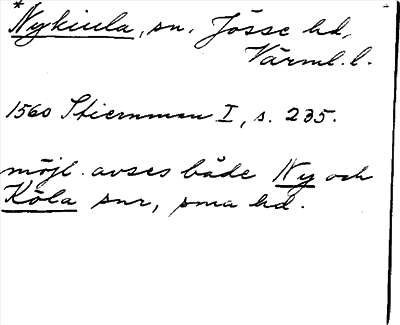 * Nykiula, sn. Jösse hd,
Värml. l.
1560 Stiernman I, s. 235.
möjl. avses både Ny och
Köla snr, sma hd.